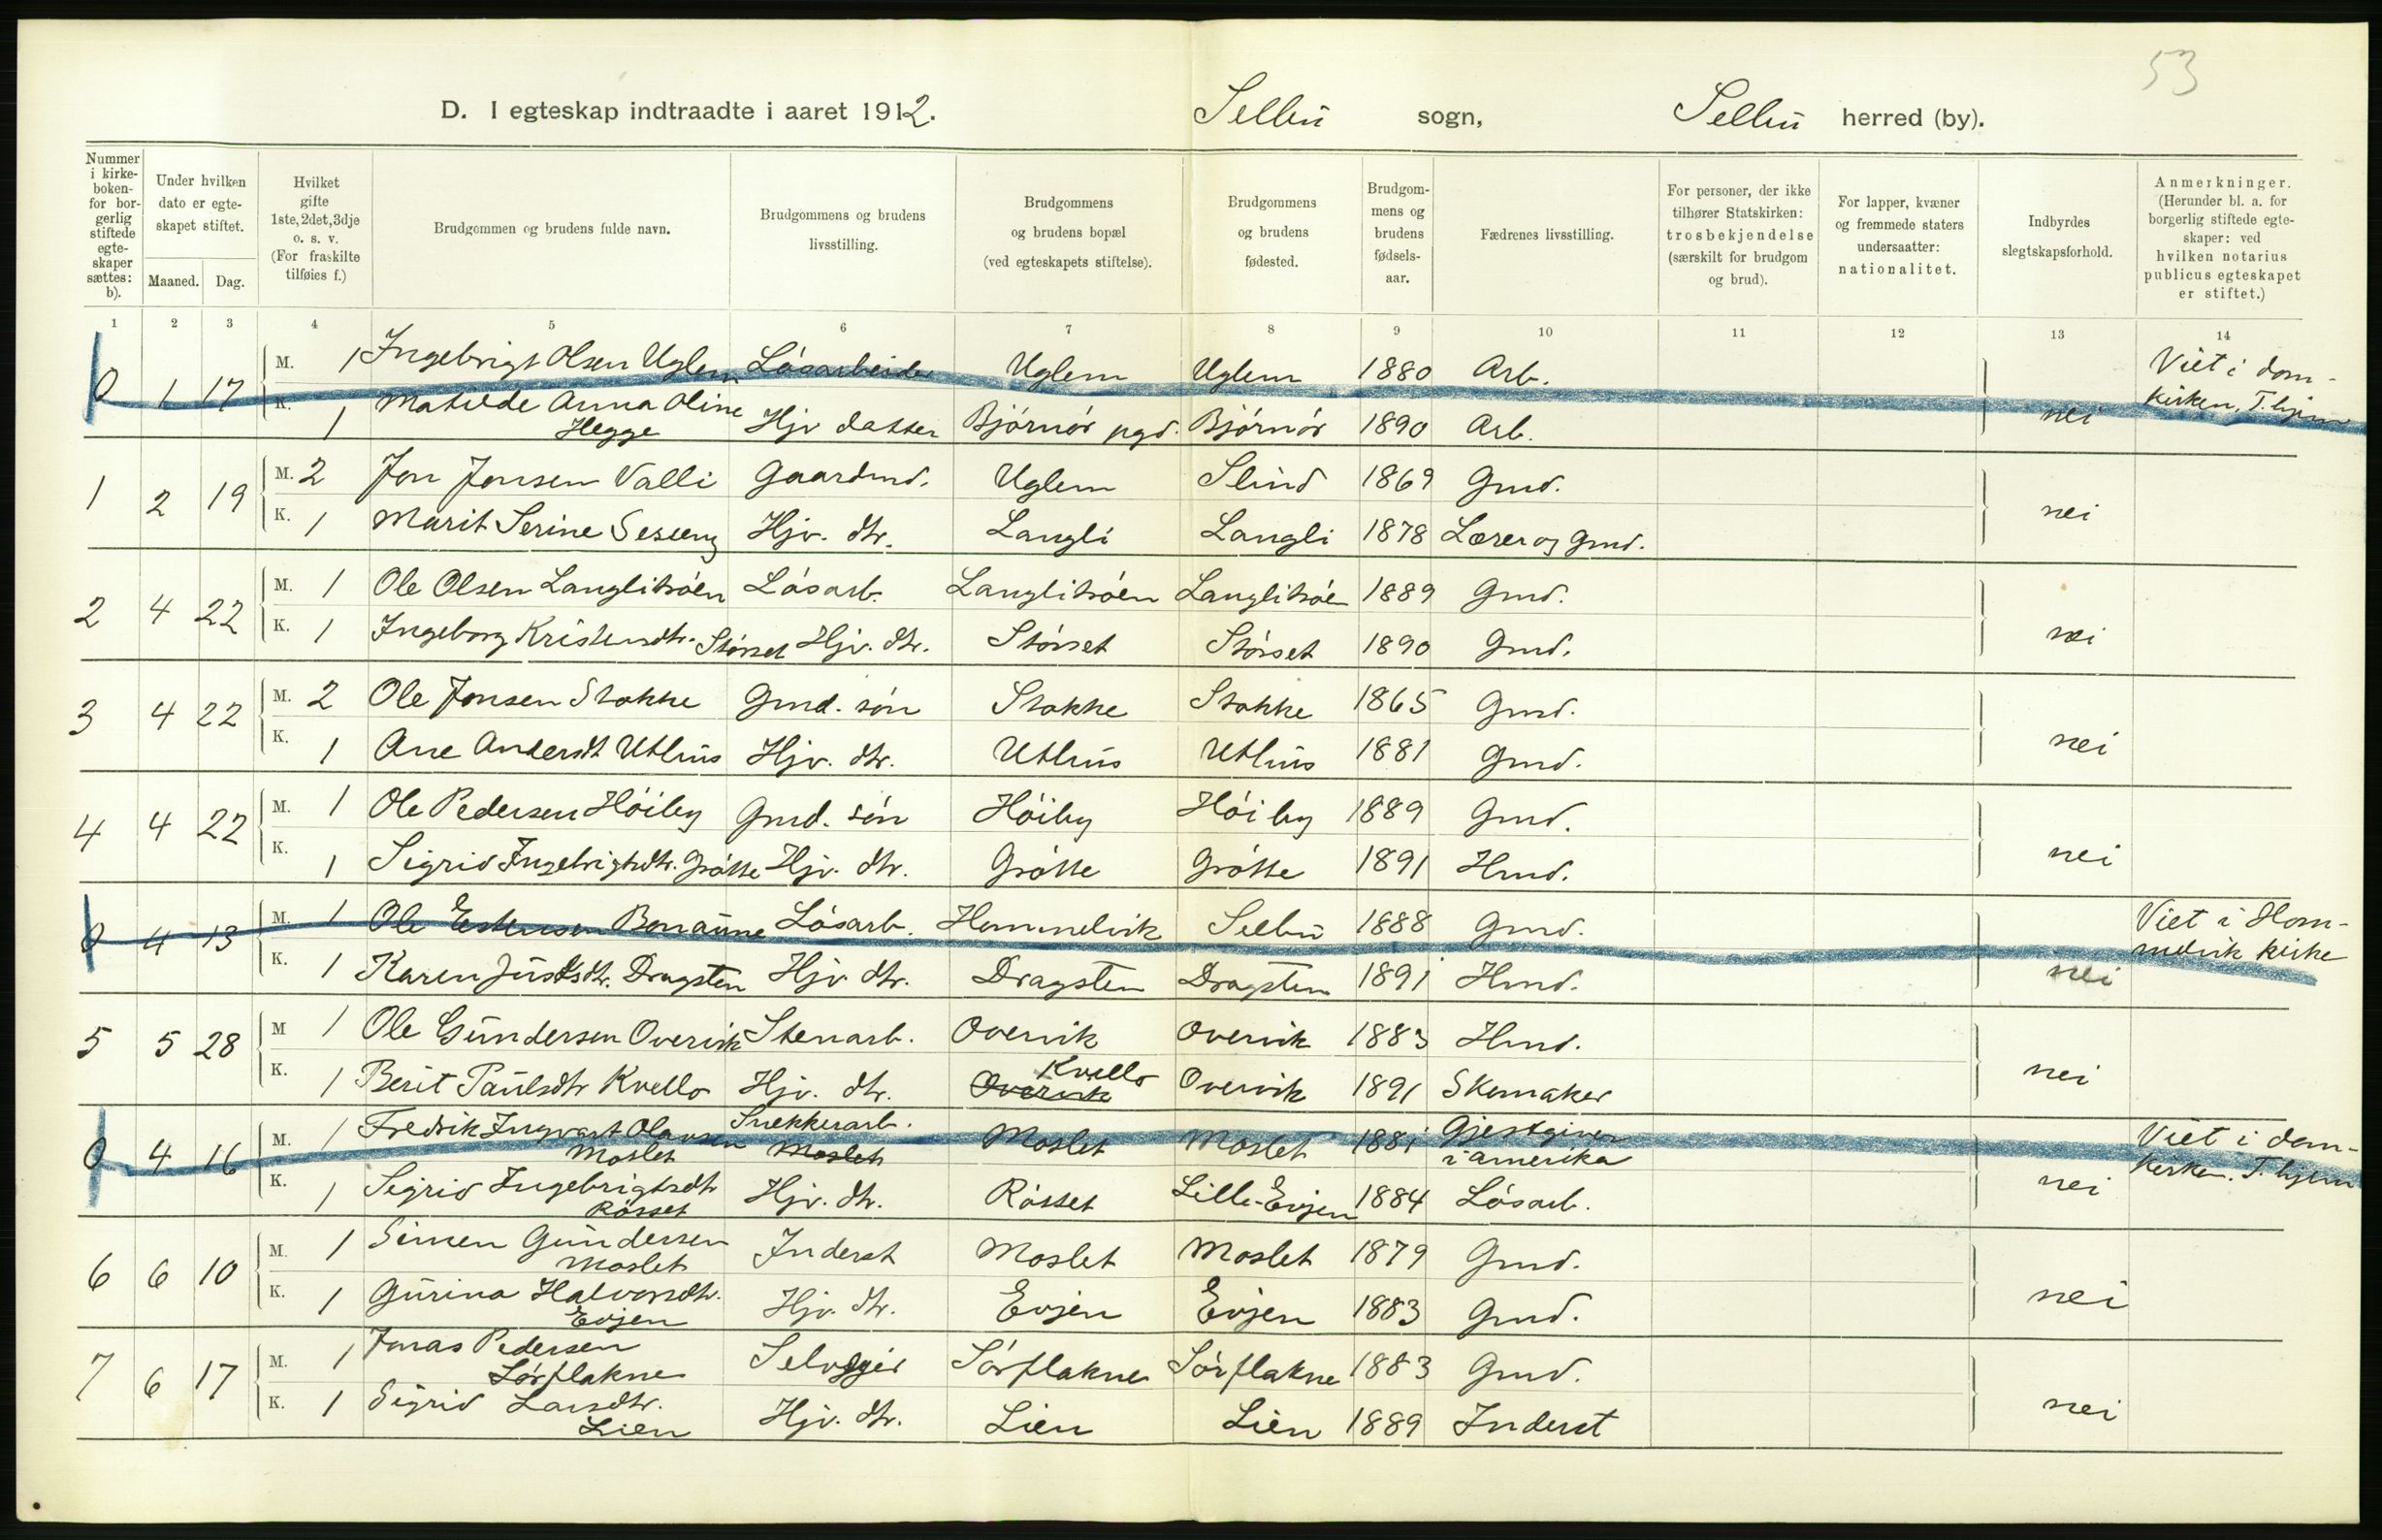 53
D. I egteskap indtraadte i aaret 1912. Selbu sogn, Selbu herred (by).
Nummer i kirke-boken- for bor-gerlig stiftede egte-skaper sættes: b).
Under hvilken dato er egte-skapet stiftet.
Maaned. Dag.
Hvilket gifte 1ste, 2det, 3dje o. s. v. (For fraskilte tilføies f.)
Brudgommen og brudens fulde navn.
Brudgommens og brudens livsstilling.
Brudgommens og brudens bopæl (ved egteskapets stiftelse).
Brudgommens og brudens fødested.
Brudgom-mens og brudens fødsels-aar.
Fædrenes livsstilling.
For personer, der ikke tilhører Statskirken: trosbekjendelse (særskilt for brudgom og brud).
For lapper, kvæner og fremmede staters undersaatter: nationalitet.
Indbyrdes slegtskapsforhold.
Anmerkninger. (Herunder bl. a. for borgerlig stiftede egte-skaper: ved hvilken notarius publicus egteskapet er stiftet.)
1 2 3 4 5 6 7 8 9 10 11 12 13 14
0 1 17 M. 1 Ingebrigt Olsen Uglem Løsarbeider Uglem Uglem 1880 Arb. Viet i dom-
kirken, T.hjem
K. 1 Matilde Anna Oline Hegge Hjv datter Bjørnør pgd. Bjørnør 1890 Arb. nei
1 2 19 M. 2 Jon Jonsen Valli Gaardmd. Uglem Slind 1869 Gmd.
K. 1 Marit Serine Sesseng Hjv. dtr. Langli Langli 1878 Lærer og Gmd. nei
2 4 22 M. 1 Ole Olsen Langlitrøen Løsarb. Langlitrøen Langlitrøen 1889 Gmd.
K. 1 Ingeborg Kristensdtr. Størset Hjv. dtr. Størset Størset 1890 Gmd. nei
3 4 22 M. 2 Ole Jonsen Stokke Gmd. søn Stokke Stokke 1865 Gmd.
K. 1 Ane Andersdt Uthus Hjv. dtr. Uthus Uthus 1881 Gmd. nei
4 4 22 M. 1 Ole Pedersen Høiby Gmd. søn Høiby Høiby 1889 Gmd.
K. 1 Sigrid Ingebrigtsdtr. Grøtte Hjv. dtr. Grøtte Grøtte 1891 Hmd. nei
0 4 13 M. 1 Ole Estensen Bonaune Løsarb. Hommelvik Selbu 1888 Gmd. Viet i Hom-
melvik kirke
K. 1 Karen Justsdtr. Dragsten Hjv dtr. Dragsten Dragsten 1891 Hmd. nei
5 5 28 M 1 Ole Gundersen Overvik Stenarb. Overvik Overvik 1883 Hmd.
K. 1 Berit Paulsdtr Kvello Hjv. dtr. Overvik Kvello Overvik 1891 Skomaker nei
0 4 16 M. 1 Fredrik Ingvart Olausen Moslet Snekkerarb. Moslet Moslet Moslet 1881 Gjestgiver i Amerika Viet i dom-
kirken. T.hjem
K. 1 Sigrid Ingebrigtsdtr Røsset Hjv. dtr. Røsset Lille-Evjen 1884 Løsarb. nei
6 6 10 M. 1 Simen Gundersen Moslet Inderst Moslet Moslet 1879 Gmd.
K. 1 Gurina Halvorsdtr. Evjen Hjv. dtr. Evjen Evjen 1883 Gmd. nei
7 6 17 M. 1 Jonas Pedersen Sørflakne Selveier Sørflakne Sørflakne 1883 Gmd.
K. 1 Sigrid Larsdtr. Lien Hjv. dtr. Lien Lien 1889 Inderst nei